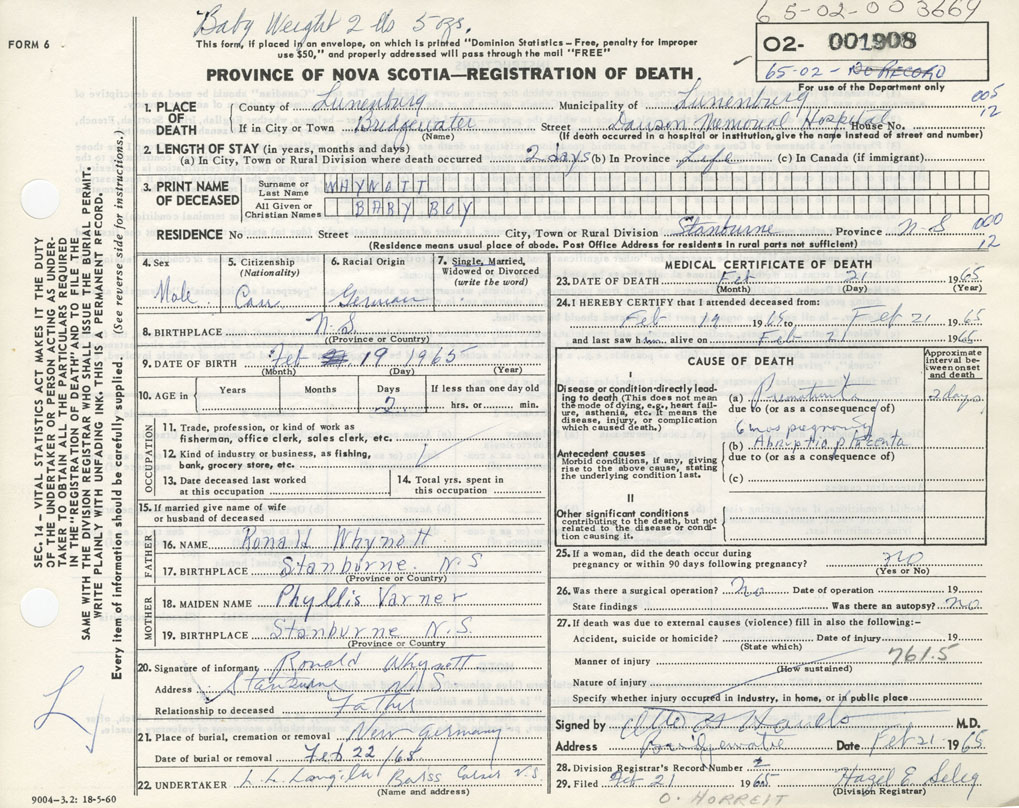 Baby Weight 2 lbs 5 ozs.
65-02-00 3669
FORM 6
This form, if placed in an envelope, on which is printed "Dominion Statistics – Free, penalty for improper
use $50," and properly addressed will pass through the mail "FREE"
02- 001908
65-02 - NO RECORD
For use of the Department only
PROVINCE OF NOVA SCOTIA—REGISTRATION OF DEATH
1. PLACE OF DEATH
County of Lunenburg Municipality of Lunenburg 005
If in City or Town Bridgewater Street Dawson Memorial Hospital House No. 12
(Name) (If death occurred in a hospital or institution, give the name instead of street and number)
2. LENGTH OF STAY (in years, months and days)
(a) In City, Town or Rural Division where death occurred 2 days (b) In Province Life (c) In Canada (if immigrant)
3. PRINT NAME OF DECEASED
Surname or Last Name WHYNOTT
All Given or Christian Names BABY BOY
RESIDENCE No Street City, Town or Rural Division Stanburne Province N-S 000
(Residence means usual place of abode. Post Office Address for residents in rural parts not sufficient) 12
4. Sex Male
5. Citizenship (Nationality) Can.
6. Racial Origin German
7. Single, Married, Widowed or Divorced (write the word)
8. BIRTHPLACE N.S.
(Province or Country)
9. DATE OF BIRTH Feb 19 1965
(Month) (Day) (Year)
10. AGE in Years Months Days 2 If less than one day old hrs. or min.
OCCUPATION
11. Trade, profession, or kind of work as
fisherman, office clerk, sales clerk, etc.
12. Kind of industry or business, as fishing,
bank, grocery store, etc.
13. Date deceased last worked
at this occupation
14. Total yrs. spent in
this occupation
15. If married give name of wife
or husband of deceased
FATHER
16. NAME Ronald Whynott
17. BIRTHPLACE Stanburne N.S
(Province or Country)
MOTHER
18. MAIDEN NAME Phyllis Varner
19. BIRTHPLACE Stanburne N.S.
(Province or Country)
20. Signature of informant Ronald Whynott
Address Stanburne N.S
Relationship to deceased Father
21. Place of burial, cremation or removal New Germany
Date of burial or removal Feb 22/65
22. UNDERTAKER Barss Corner N.S.
(Name and address)
9004–3.2: 18-5-60
MEDICAL CERTIFICATE OF DEATH
23. DATE OF DEATH Feb 21 1965
(Month) (Day) (Year)
24. I HEREBY CERTIFY that I attended deceased from:
Feb 19 1965 to Feb 21 1965
and last saw him alive on Feb 21 1965
CAUSE OF DEATH
Approximate interval between onset and death
I
Disease or condition directly leading
to death (This does not mean
the mode of dying, e.g., heart failure,
asthenia, etc. It means the
disease, injury, or complication
which caused death.)
(a) Prematurity 2 days
due to (or as a consequence of)
6 mos pregnancy
Antecedent causes
Morbid conditions, if any, giving
rise to the above cause, stating
the underlying condition last.
(b) Abruptio placenta
due to (or as a consequence of)
(c)
II
Other significant conditions
contributing to the death, but not
related to the disease or condition
causing it.
25. If a woman, did the death occur during
pregnancy or within 90 days following pregnancy? no
(Yes or No)
26. Was there a surgical operation? no Date of operation 19
State findings Was there an autopsy? no
27. If death was due to external causes (violence) fill in also the following:-
Accident, suicide or homicide? Date of injury 19
(State which)
761.5
Manner of injury
(How sustained)
Nature of injury
Specify whether injury occurred in industry, in home, or in public place
Signed by M.D.
Address Bridgewater Date Feb 21 1965
28. Division Registrar's Record Number 2
29. Filed Feb 21 1965 Hazel E Seleg
(Division Registrar)
O. HORREIT
SEC. 14 – VITAL STATISTICS ACT MAKES IT THE DUTY
OF THE UNDERTAKER OR PERSON ACTING AS UNDERTAKER
TO OBTAIN ALL THE PARTICULARS REQUIRED
IN THE "REGISTRATION OF DEATH" AND TO FILE THE
SAME WITH THE DIVISION REGISTRAR WHO SHALL ISSUE THE BURIAL PERMIT.
WRITE PLAINLY WITH UNFADING INK. THIS IS A PERMANENT RECORD.
Every item of information should be carefully supplied. (See reverse side for instructions.)
L